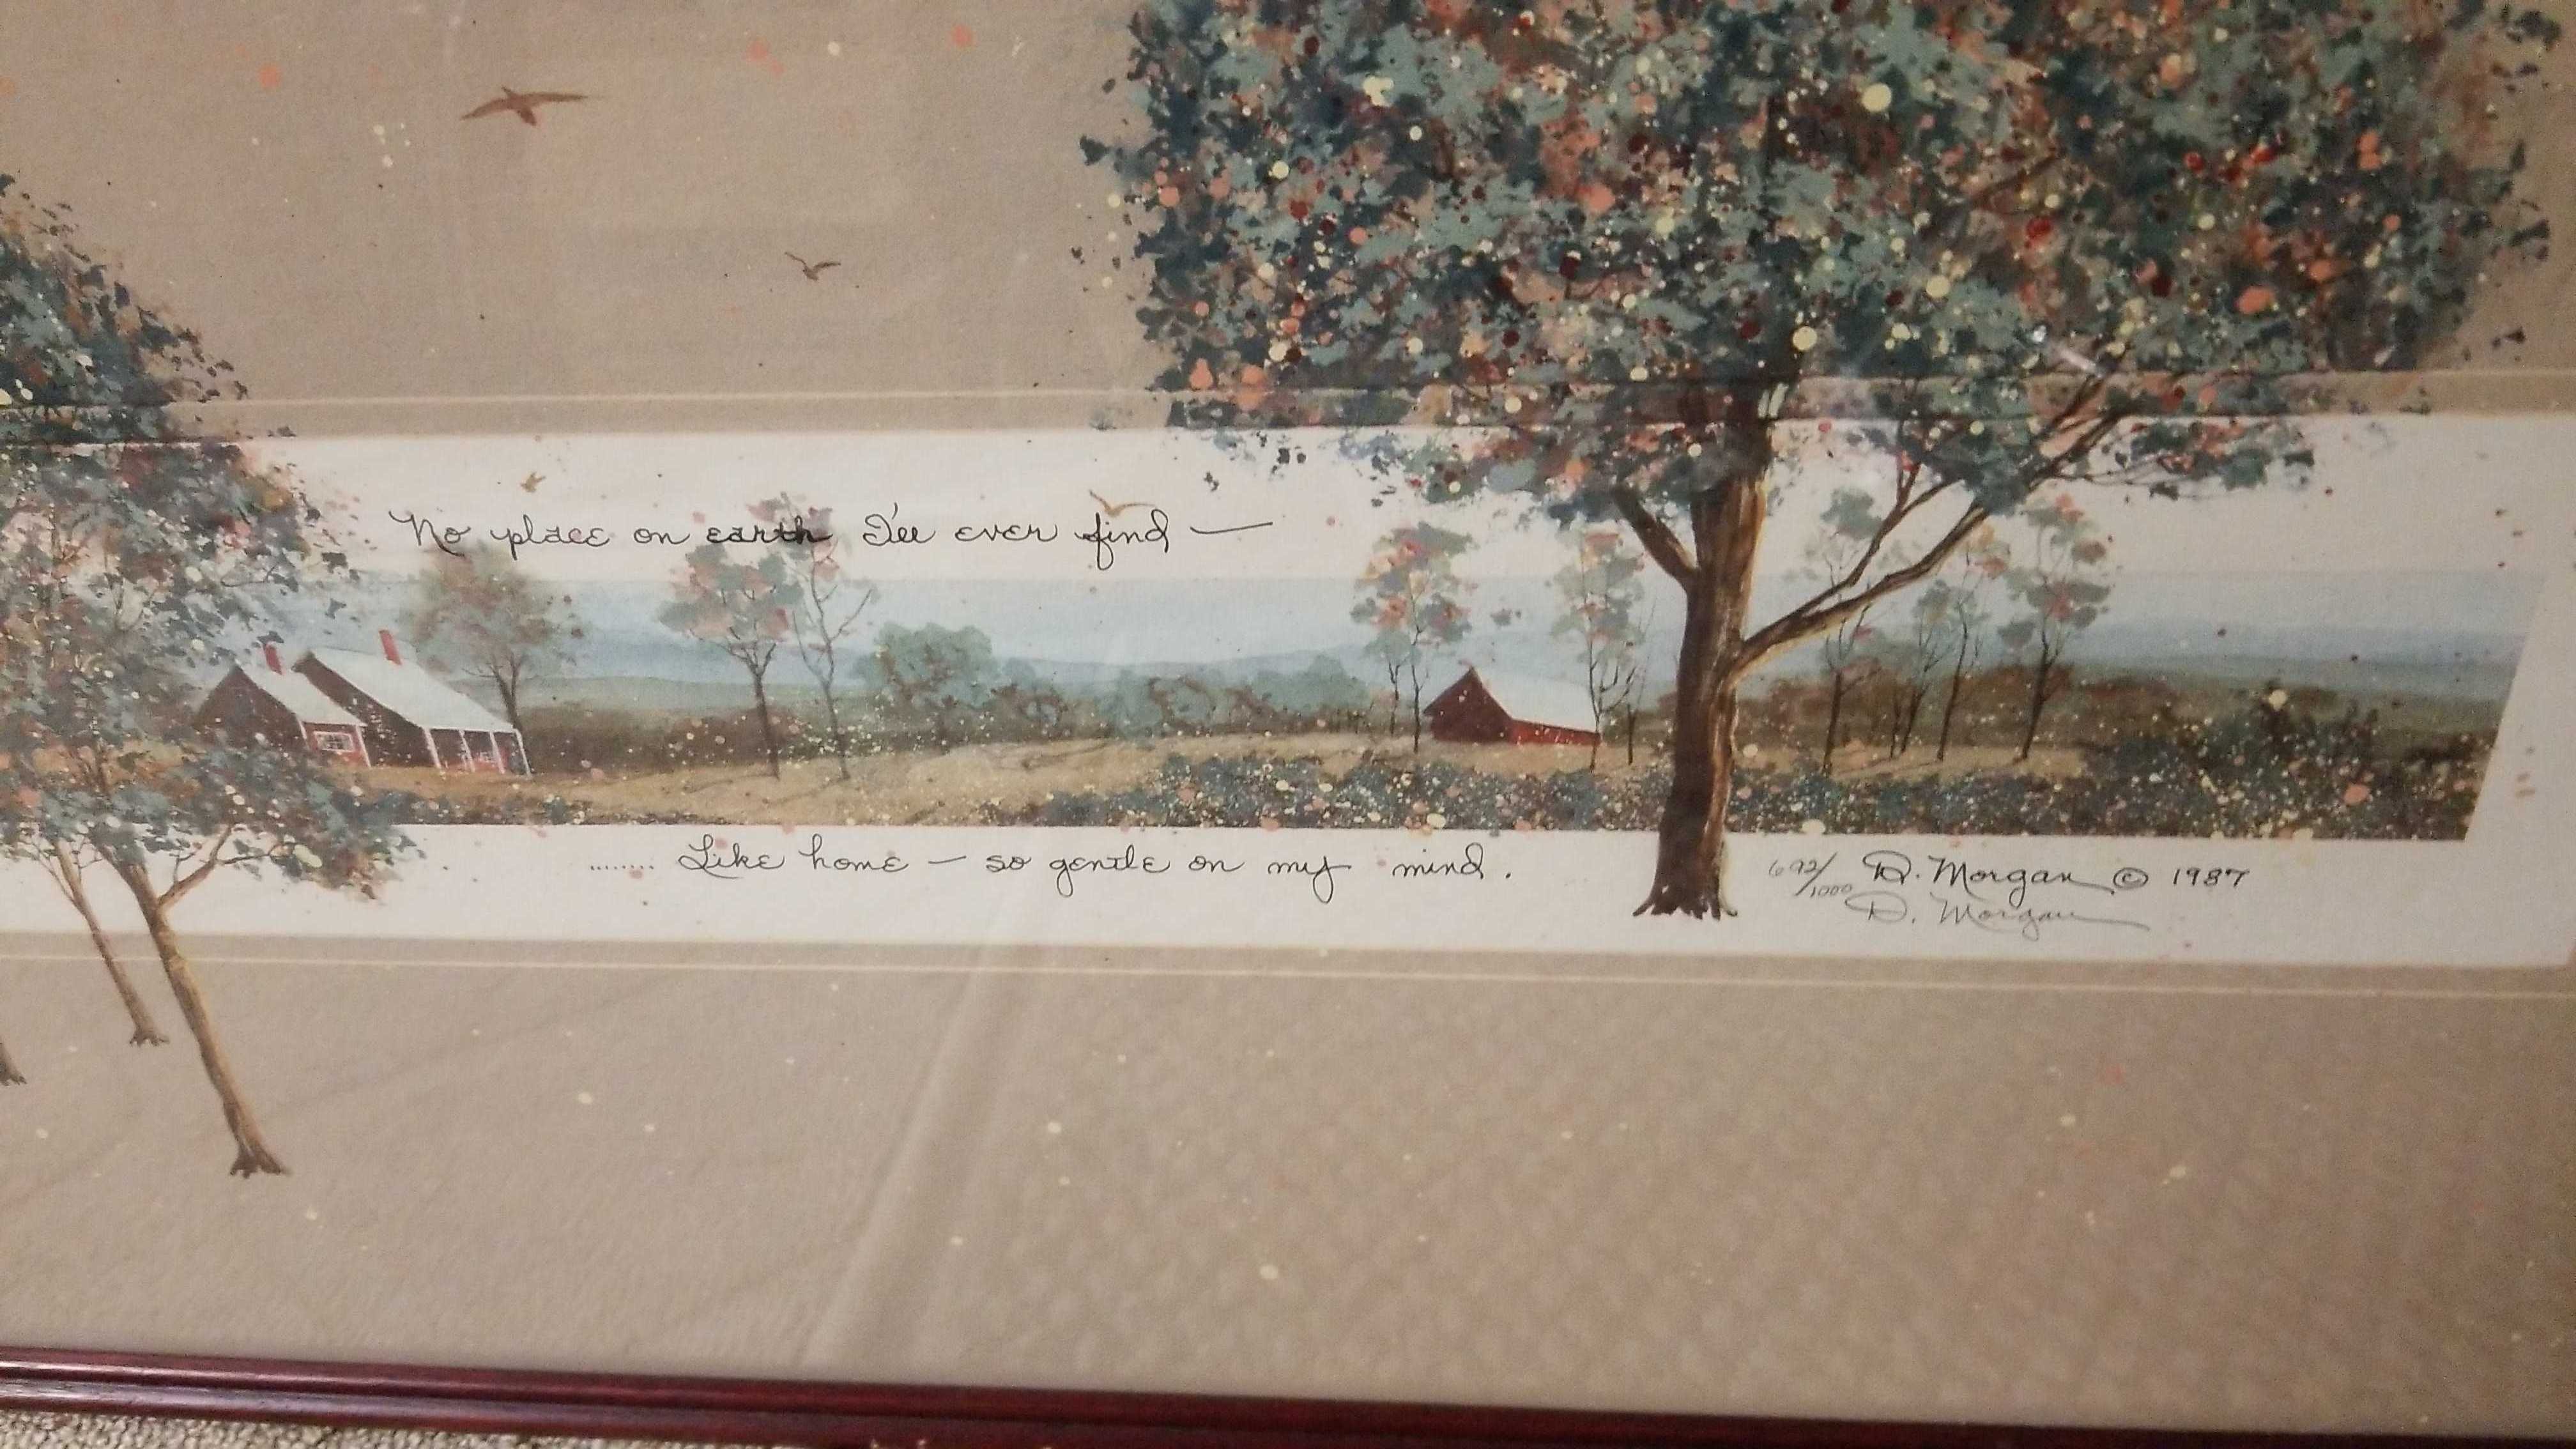 No place on earth I'll ever find —
........ Like home — so gentle on my mind.
692/1000 D. Morgan © 1987
D. Morgan